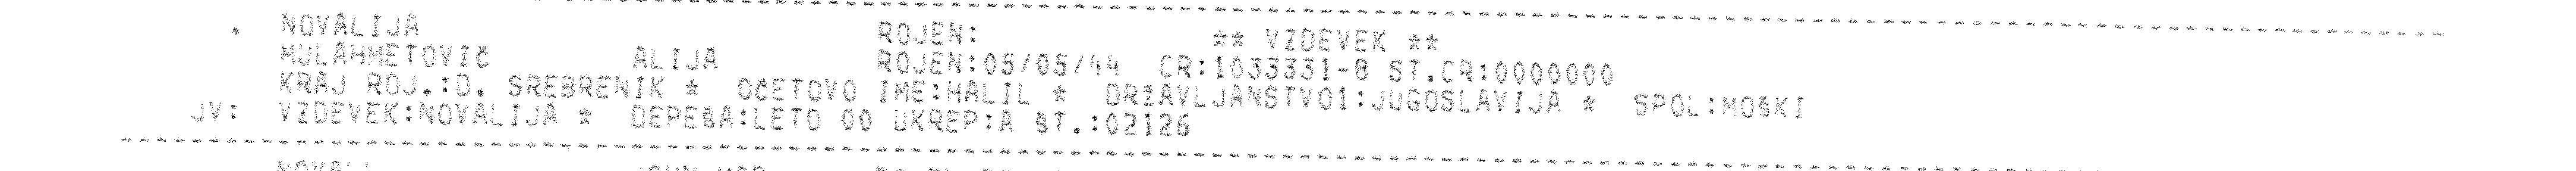 . NOVALIJA ROJEN: ** VZDEVEK **
MULAHMETOVIČ ALIJA ROJEN:05/05/44 CR:1033331-8 ST.CR:0000000
KRAJ ROJ.:D. SREBRENIK * OČETOVO IME:HALIL * DRŽAVLJANSTVO1:JUGOSLAVIJA * SPOL:MOŠKI
JV: VZDEVEK:NOVALIJA * DEPEŠA:LETO 00 UKREP:A ŠT.:02126